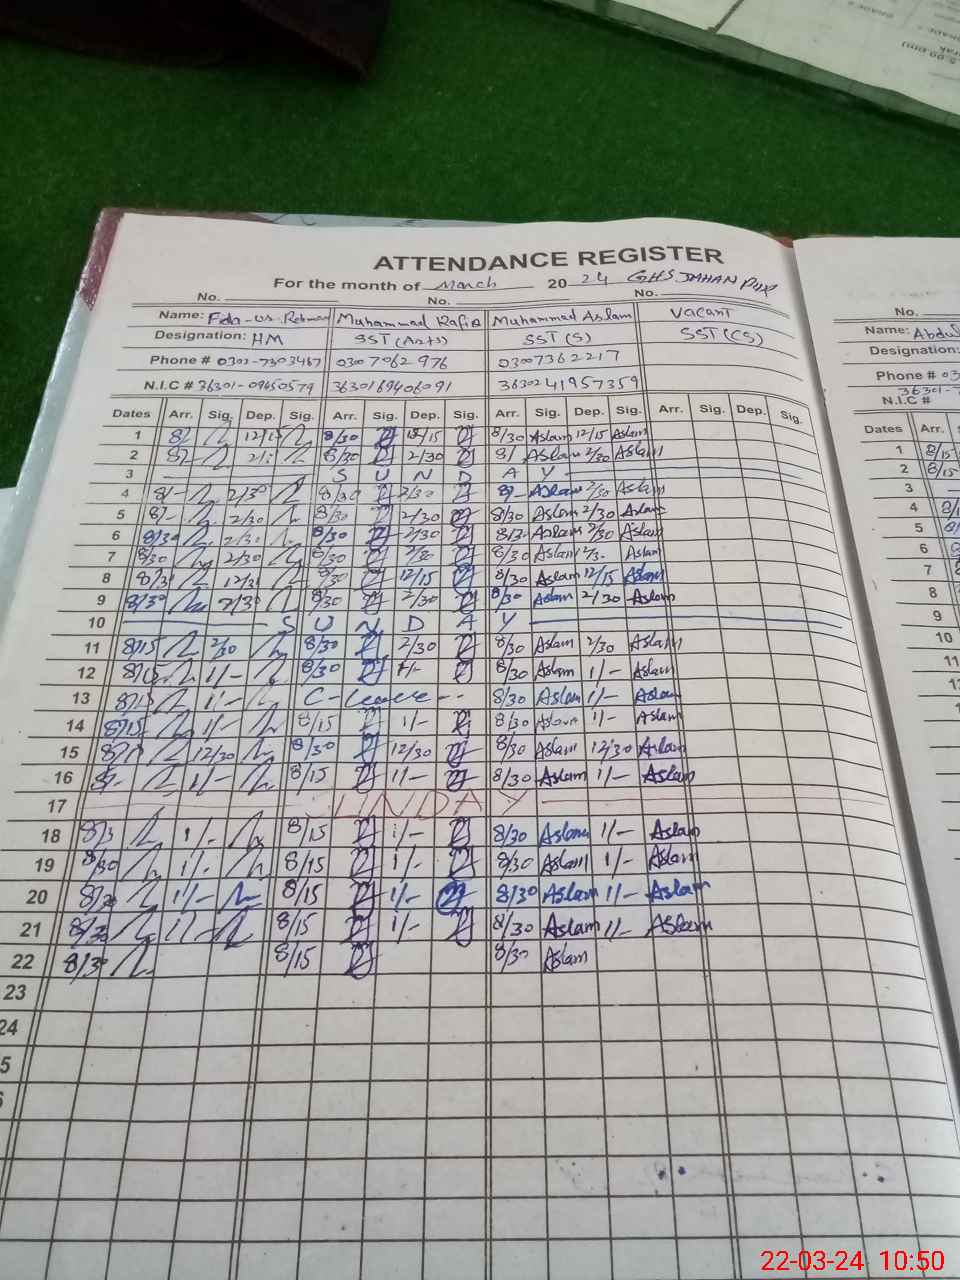 ATTENDANCE REGISTER
For the month of March 2024 GHS JAHAN PUR
No. No. No.
Name: Fida-ur-Rehman Muhammad Rafiq Muhammad Aslam Vacant
Designation: HM SST (Arts) SST (S) SST (CS)
Phone # 0302-7303467 03007062976 03007362217
N.I.C # 36301-09450579 3630169406091 3630241957359
Dates Arr. Sig. Dep. Sig. Arr. Sig. Dep. Sig. Arr. Sig. Dep. Sig. Arr. Sig. Dep. Sig.
1 8/- 12/15 8/30 12/15 8/30 Aslam 12/15 Aslam
2 8/- 8/30 2/30 8/ Aslam 2/30 Aslam
3 S U N D A Y
4 8/- 2/30 8/30 2/30 8/- Aslam 2/30 Aslam
5 8/- 2/30 8/30 2/30 8/30 Aslam 2/30 Aslam
6 8/30 2/30 8/30 2/30 8/3- Aslam 2/30 Aslam
7 8/30 2/30 8/30 8/30 Aslam 2/3- Aslam
8 8/3 12/3 8/30 12/15 8/30 Aslam 12/15 Aslam
9 8/30 2/30 8/30 2/30 8/30 Aslam 2/30 Aslam
10 S U N D A Y
11 8/15 2/30 8/30 2/30 8/30 Aslam 2/30 Aslam
12 8/15 1/- 8/30 1/- 8/30 Aslam 1/- Aslam
13 8/15 1/- C-Leave-- 8/30 Aslam 1/- Aslam
14 8/15 1/- 8/15 1/- 8/30 Aslam 1/- Aslam
15 12/30 8/30 12/30 8/30 Aslam 12/30 Aslam
16 8/- 1/- 8/15 1/- 8/30 Aslam 1/- Aslam
17 SUNDAY
18 8/3 1/- 8/15 1/- 8/30 Aslam 1/- Aslam
19 8/30 1/- 8/15 1/- 8/30 Aslam 1/- Aslam
20 8/30 1/- 8/15 1/- 8/30 Aslam 1/- Aslam
21 8/30 1/- 8/15 1/- 8/30 Aslam 1/- Aslam
22 8/30 8/15 8/30 Aslam
23
24
5
No.
Name: Abdul
Designation:
Phone # 03
N.I.C # 36301-7
Dates Arr.
1 8/15
2 8/15
3
4
5
6
7
8
9
10
11
12
13
22-03-24 10:50